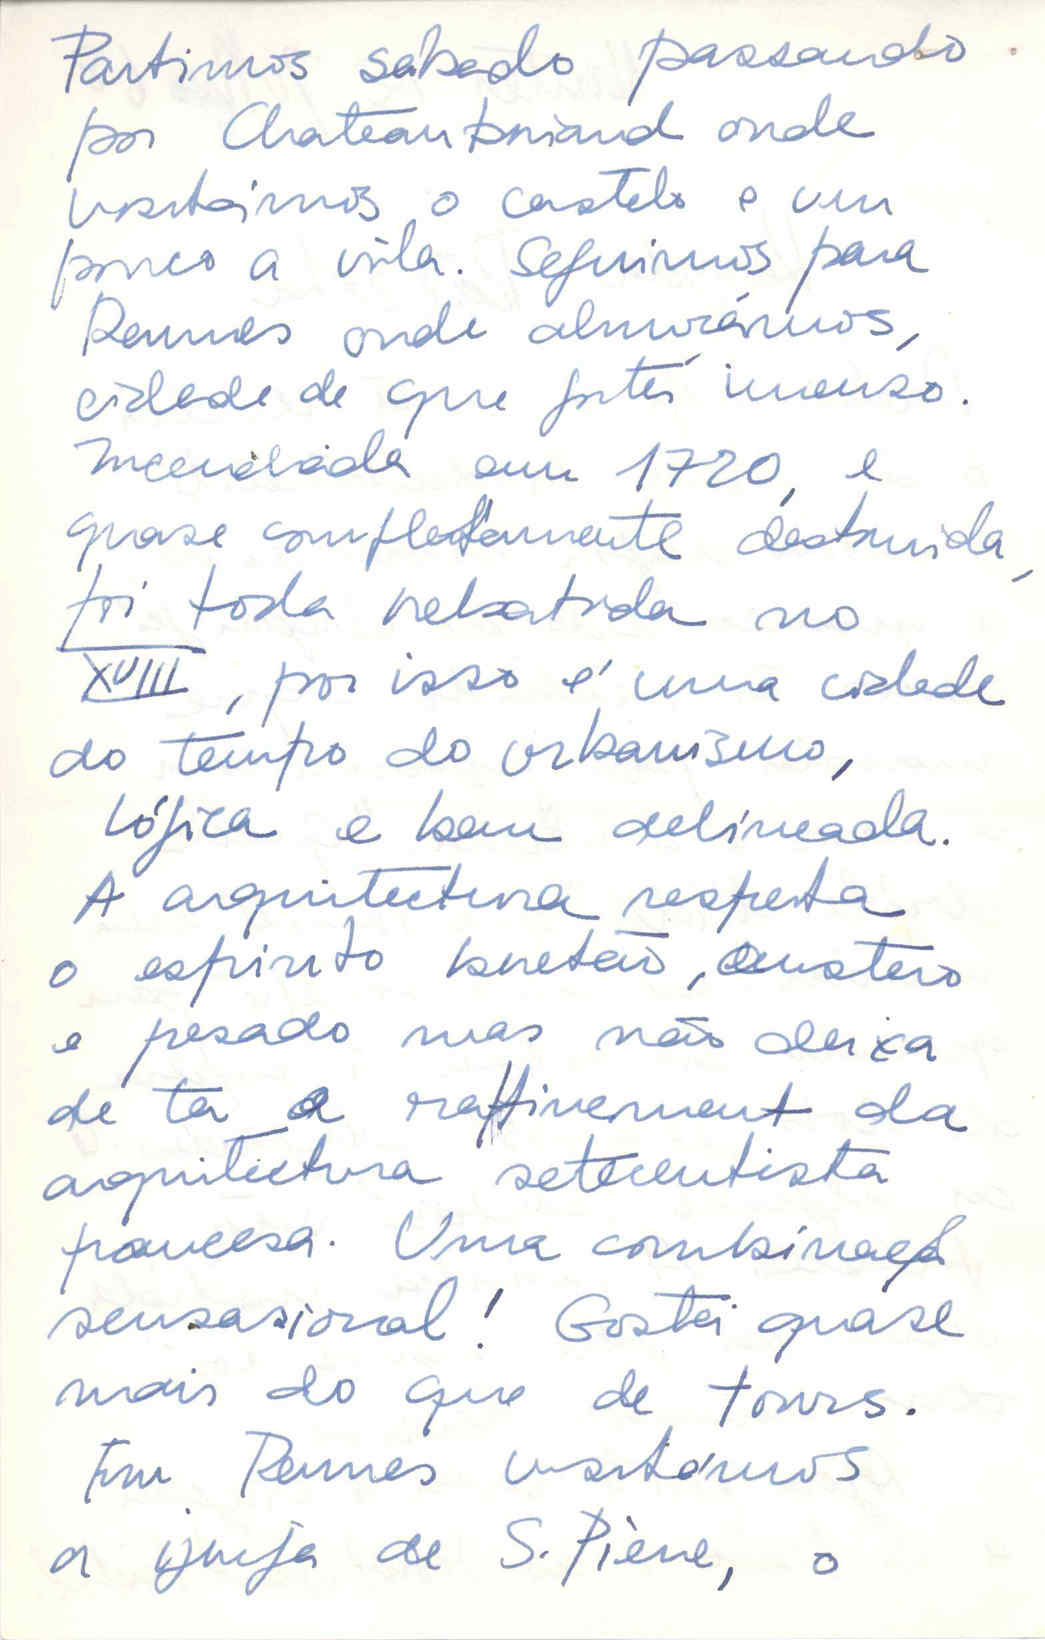 Partimos sábado passando
por Chateaubriand onde
visitámos o castelo e um
pouco a vila. Seguimos para
Rennes onde almoçámos,
cidade de que gostei imenso.
Incendiada em 1720, e
quase completamente destruida,
foi toda rebatida no
XVIII, por isso é uma cidade
do tempo do urbanismo,
lógica e bem delineada.
A arquitectura respeita
o espirito bretão, austero
e pesado mas não deixa
de ter o raffinement da
arquitectura setecentista
francesa. Uma combinação
sensasional! Gostei quase
mais do que de Tours.
Em Rennes visitámos
a igreja de S. Pière, o